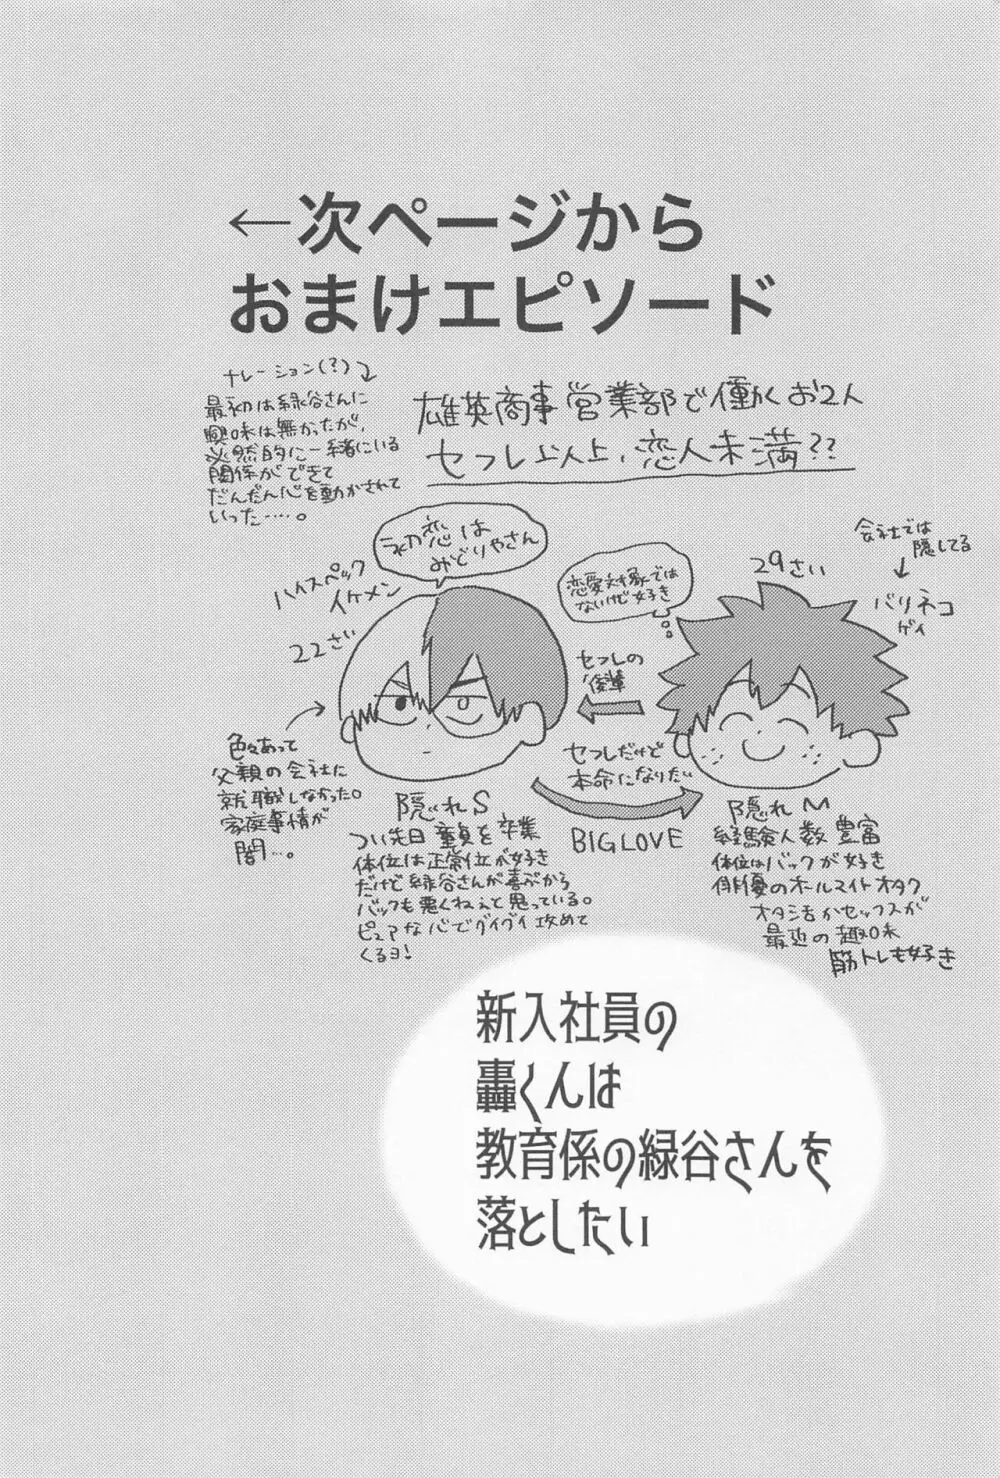 ←次ページから
おまけエピソード
ナレーション(?)
最初は緑谷さんに
興味は無かったが、
必然的に一緒にいる
関係ができて
だんだん心を動かされて
いった……。
雄英商事営業部で働くお2人
セフレ以上、恋人未満??
初恋は
みどりやさん
ハイスペック
イケメン
22さい
恋愛対象では
ないけど好き
29さい
会社では
隠してる
バリネコ
ゲイ
セフレの
後輩
セフレだけど
本命になりたい
BIG LOVE
色々あって
父親の会社に
就職しなかった。
家庭事情が
闇…。
隠れS
つい先日童貞を卒業
体位は正常位が好き
だけど緑谷さんが喜ぶから
バックも悪くねぇと思っている。
ピュアな心でグイグイ攻めて
くるヨ!
隠れM
経験人数豊富
体位はバックが好き
俳優のオールマイトオタク
オタ活かセックスが
最近の趣味
筋トレも好き
新入社員の
轟くんは
教育係の緑谷さんを
落としたい